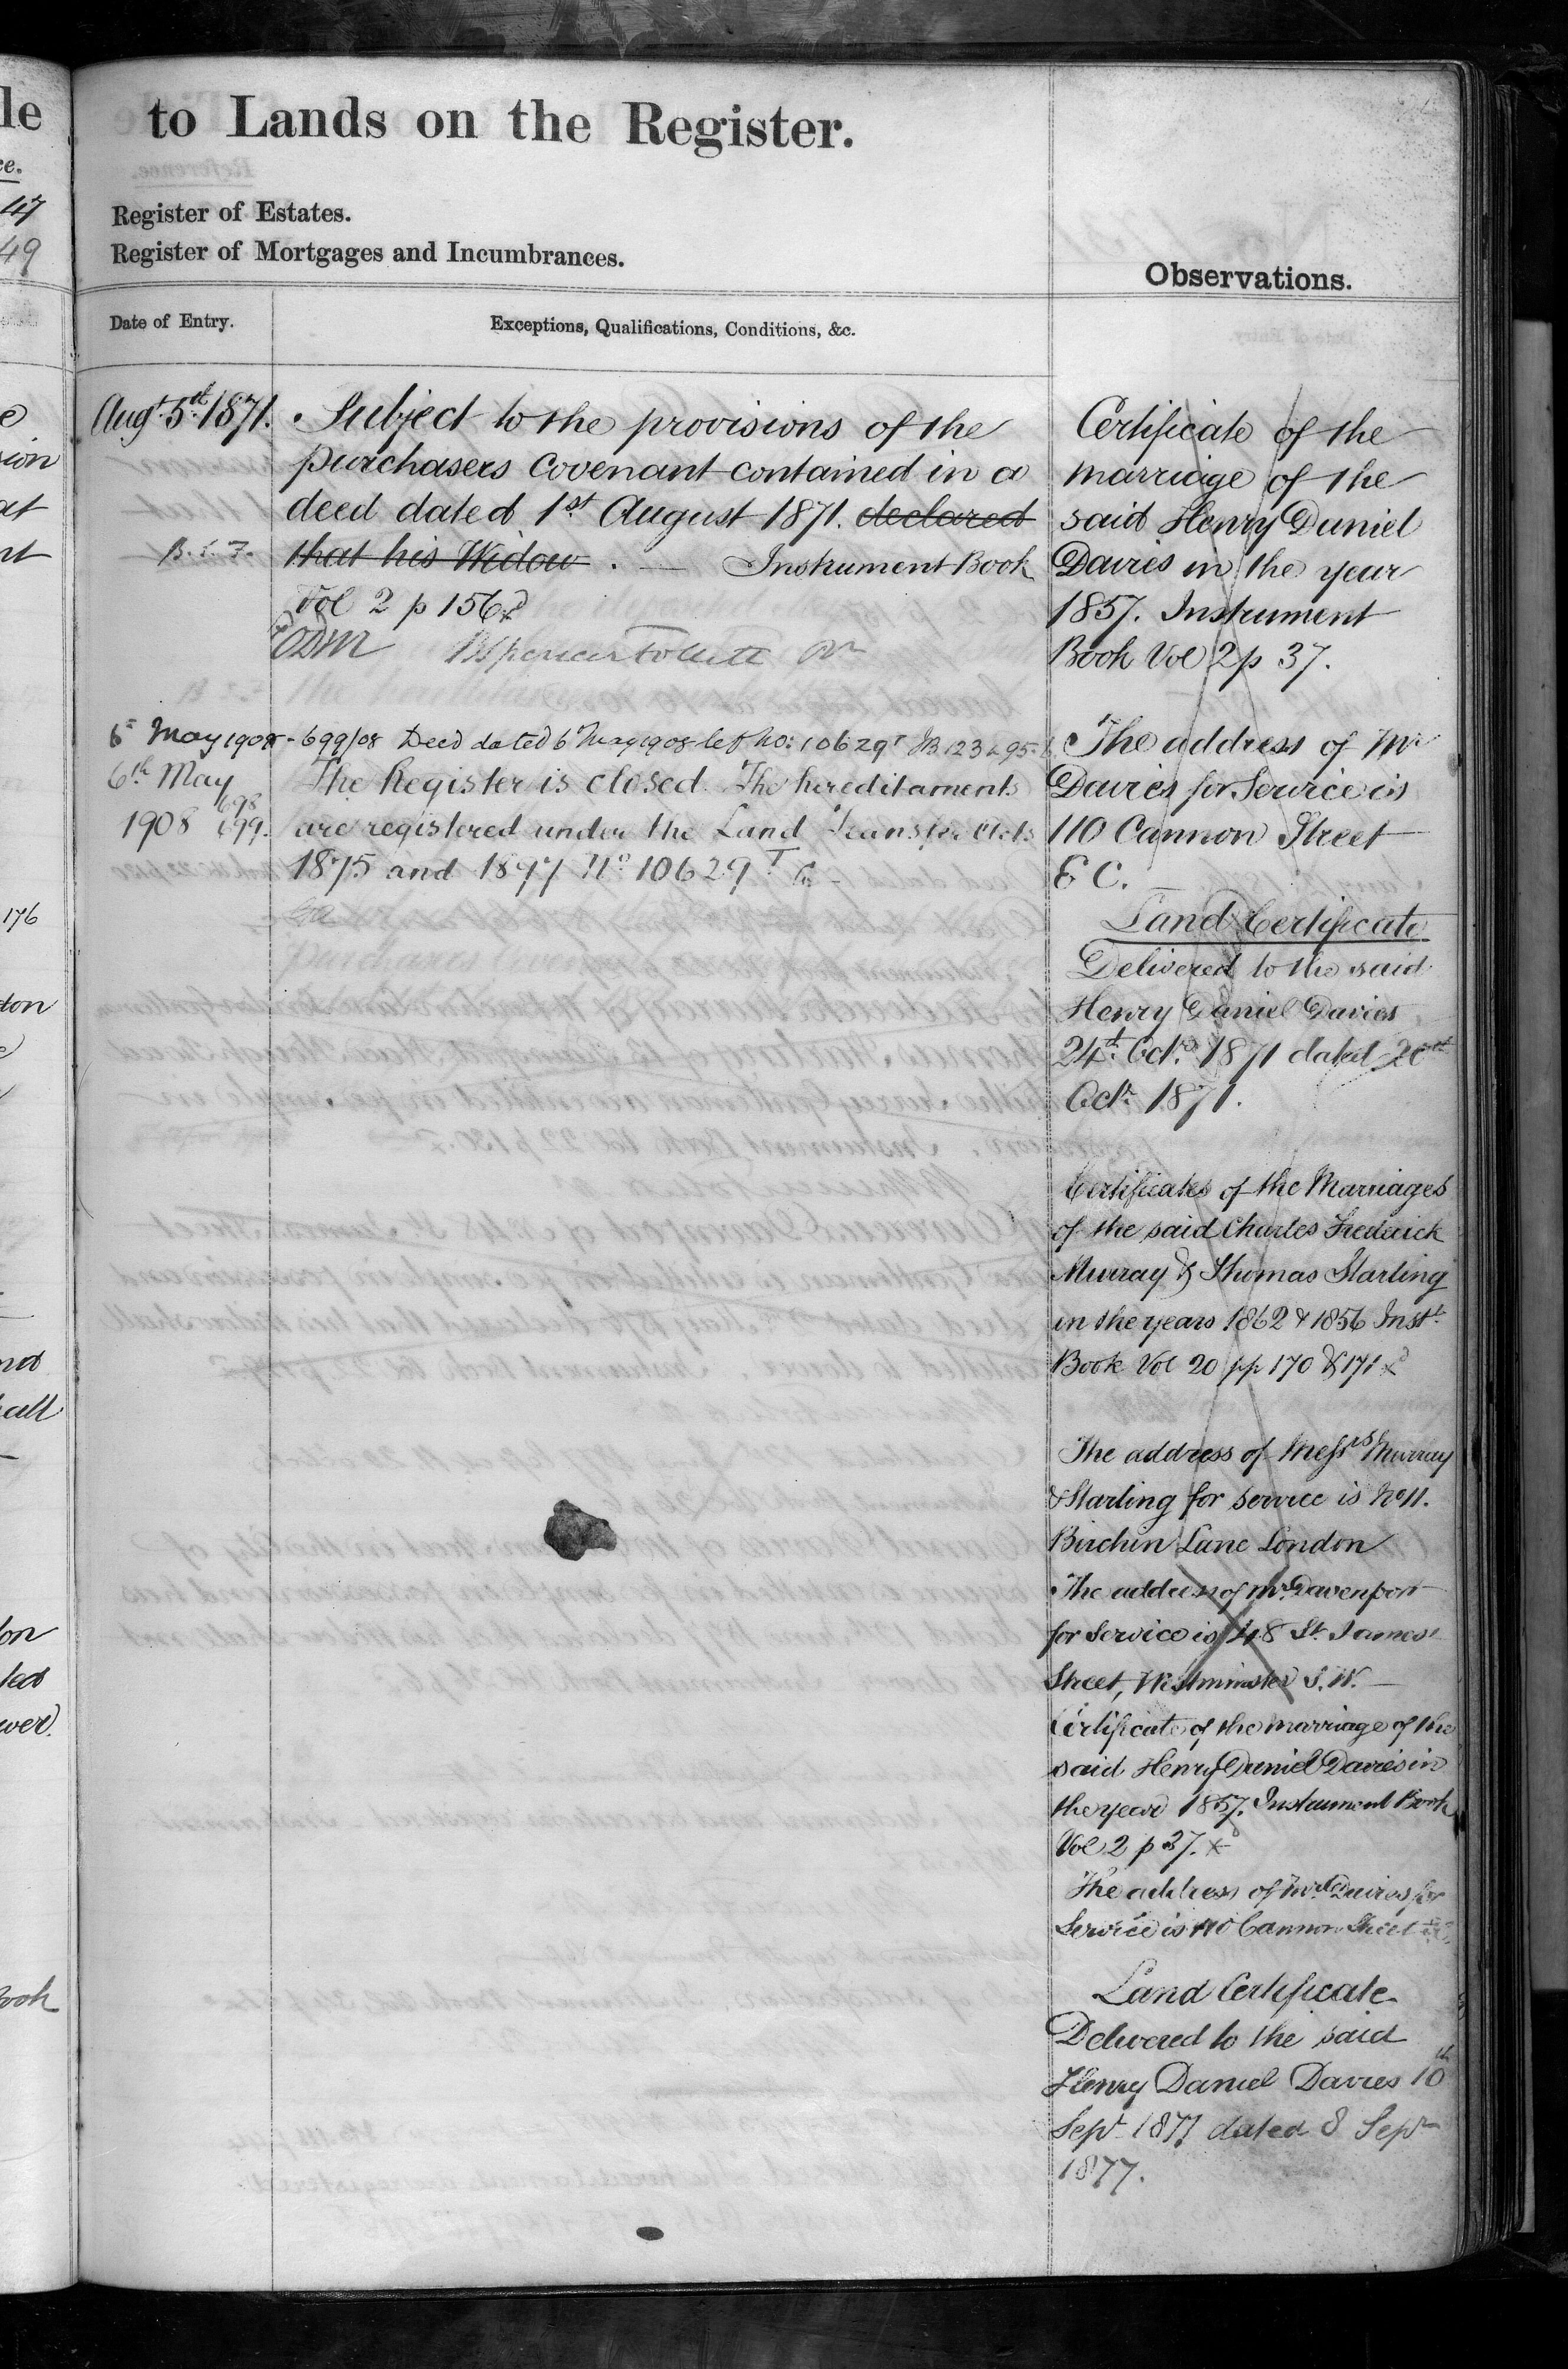 le
to Lands on the Register.
ce.
47
49
Register of Estates.
Register of Mortgages and Incumbrances.
Observations.
Date of Entry.
Exceptions, Qualifications, Conditions, &c.
Augt. 5th. 1871.
Subject to the provisions of the
purchasers covenant contained in a
deed dated 1st August 1871. declared
that his Widow. — Instrument Book
Vol 2 p 156
6 May 1908 - 699/08 Deed dated 6 May 1908 left no: 10629T
6th May
1908 698 699.
The Register is closed. The hereditaments
are registered under the Land Transfer Acts
1875 and 1897 No 10629T
Certificate of the
marriage of the
said Henry Daniel
Davies in the year
1857. Instrument
Book Vol 2 p 37.
The address of Mr
Davies for Service is
110 Cannon Street
E C.
Land Certificate
Delivered to the said
Henry Daniel Davies
24th. Oct. 1871 dated 20th
Oct. 1871.
Certificates of the Marriages
of the said Charles Frederick
Murray & Thomas Starling
in the years 1862 & 1856 Inst.
Book Vol 20 pp 170 & 171
The address of Messrs Murray
& Starling for service is No 11.
Birchin Lane London
The address of Mr Davenport
for Service is 48 St. James'
Street, Westminster S.W. —
Certificate of the marriage of the
said Henry Daniel Davies in
the year 1857. Instrument Book
Vol 2 p 37.
The address of Mr Davies for
Service is 110 Cannon Street
Land Certificate
Delivered to the said
Henry Daniel Davies 10th
Sept 1877 dated 8 Sepr
1877.
176